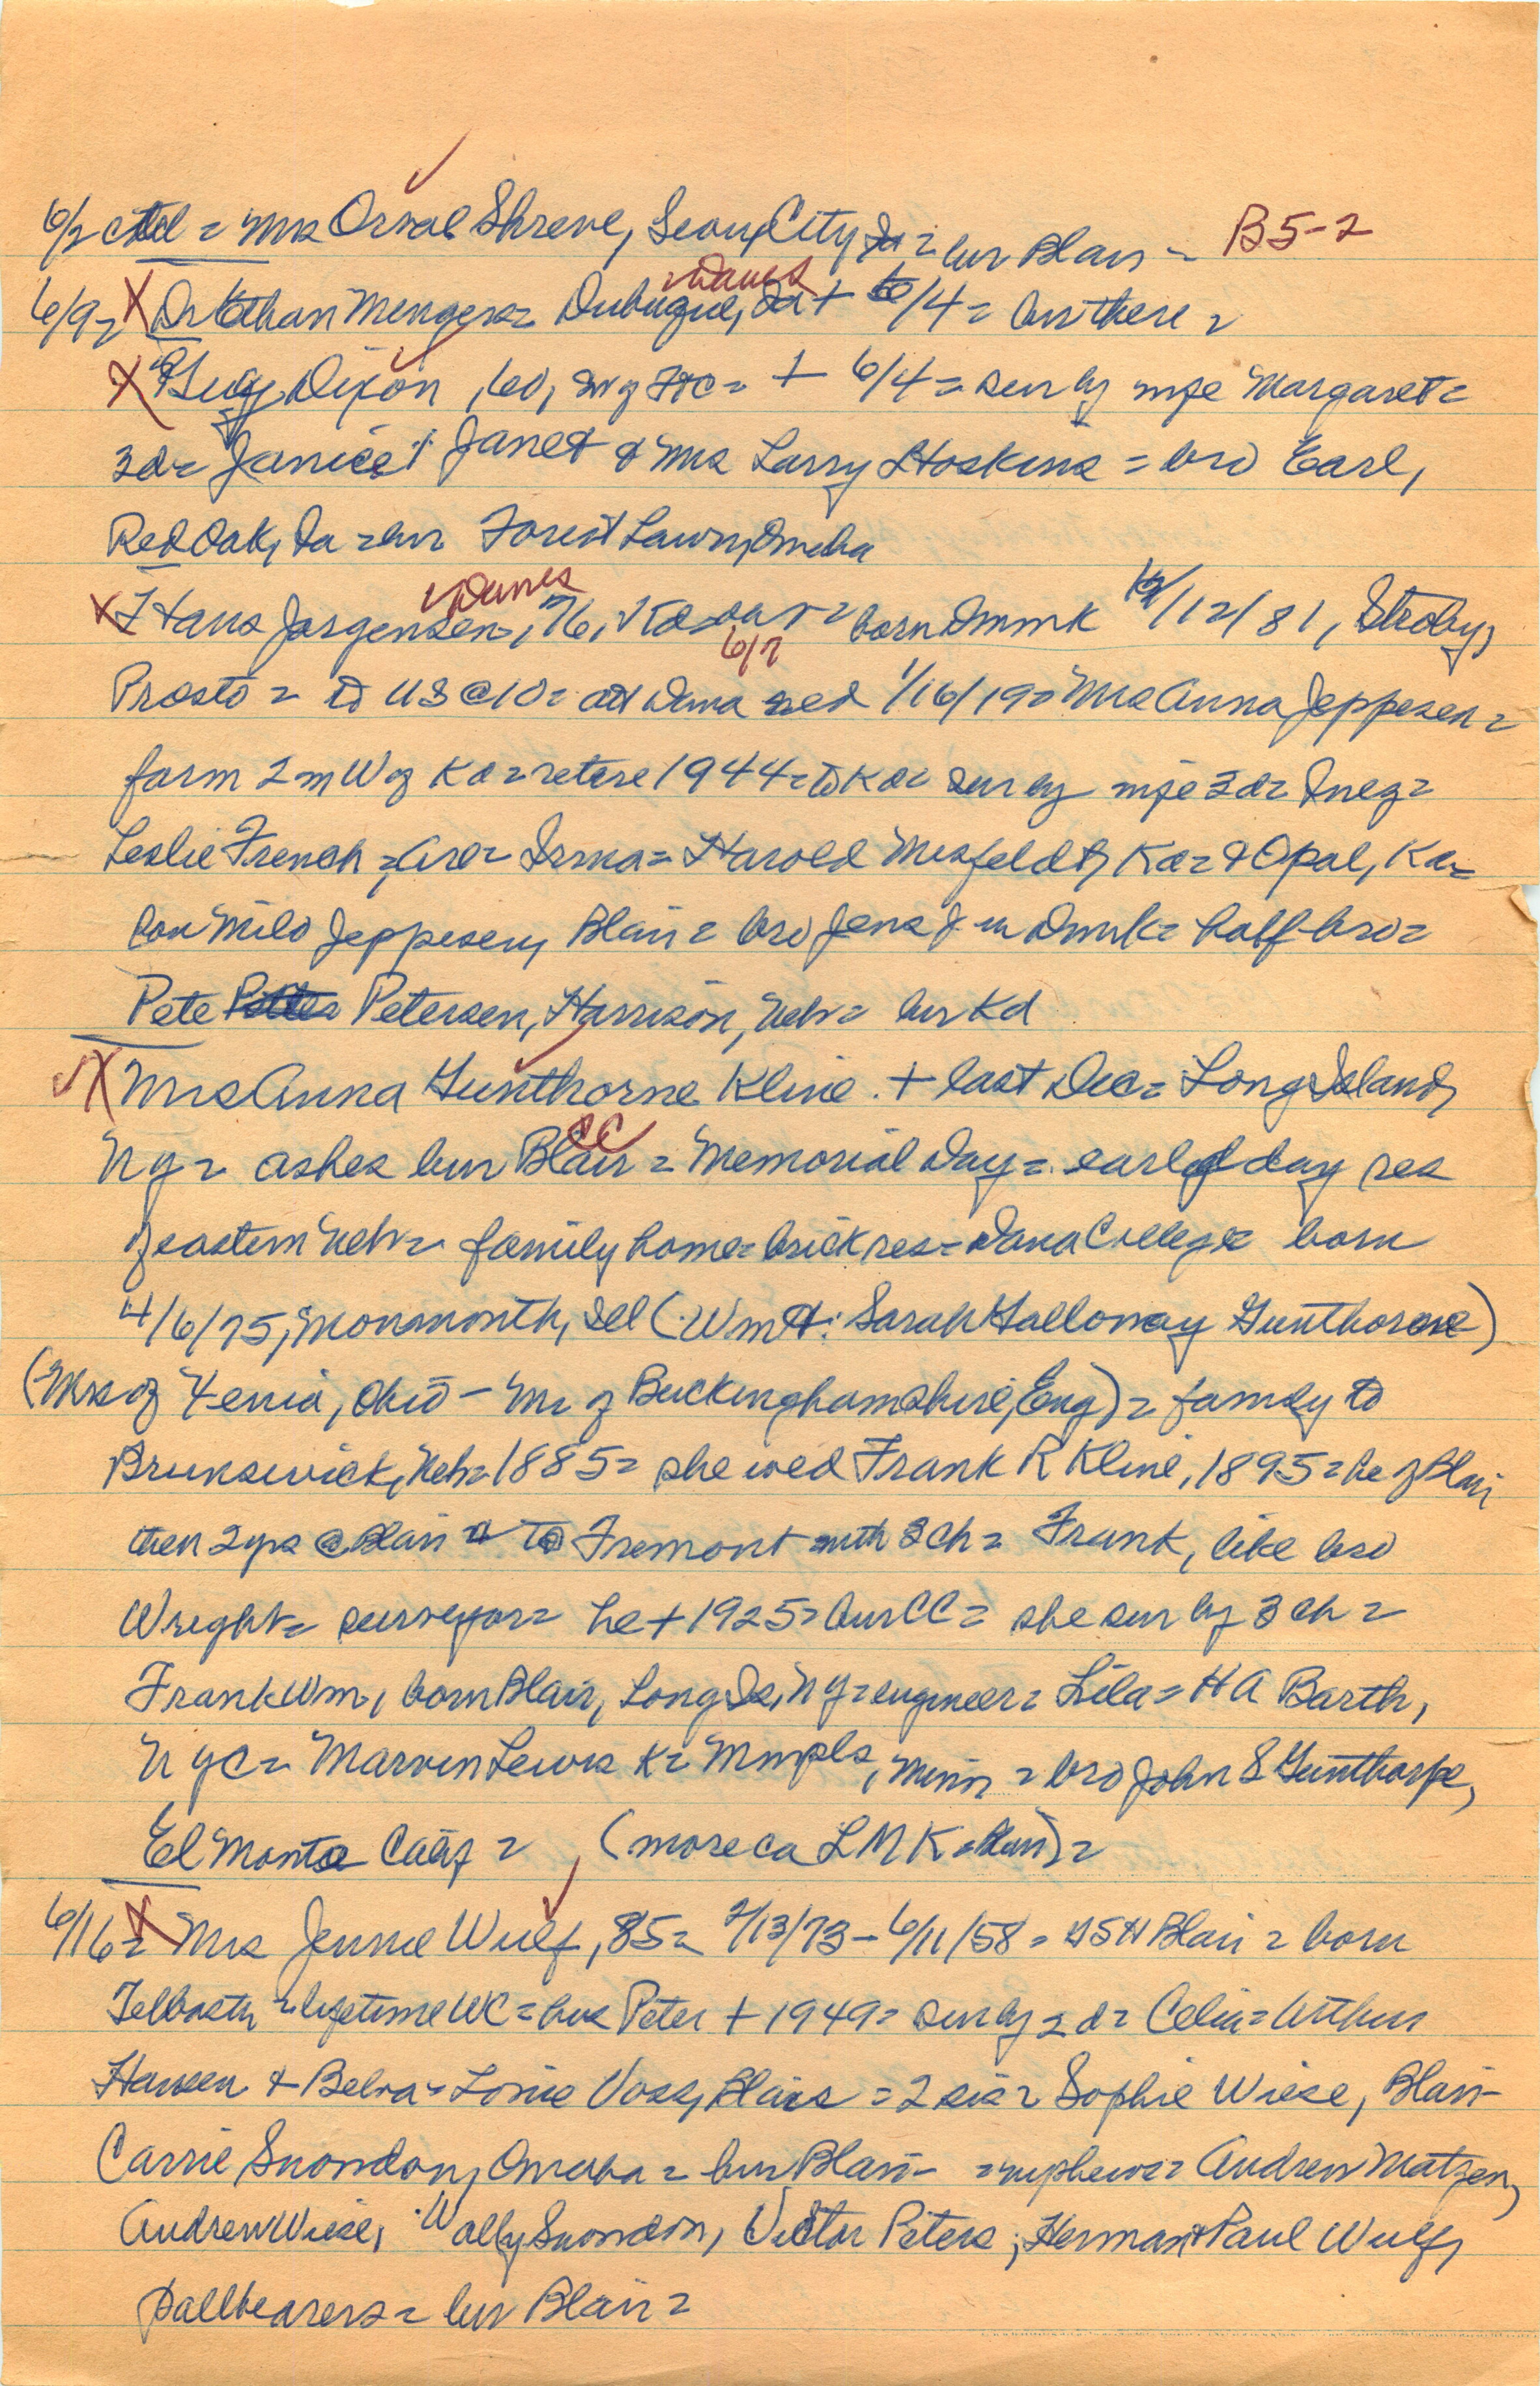 6/2 = Mrs Orval Shreve, Sioux City Ia = bur Blair = B5-2
6/9 = X Dr Mengers = Dubuque, Ia + 6/4 = bur there =
Dana
X Guy Dixon, 60, = + 6/4 = sur by mfe Margaret =
3 d = Janice; Janet & Mrs Larry Hoskins = bro Earl,
Red Oak, Ia = bur Forest Lawn, Omaha
Danes
X Hans Jorgensen, 76, Kd = born Dnmk 12/12/81, Stroby,
6/7
Prasto = to US @ 10 = att Dana = wed 1/16/19 = Mrs Anna Jeppesen =
farm 2 m W of Kd = retire 1944 = to Kd = sur by mfe 3 d = Inez =
Leslie French = = Irma = Harold Misfeldt, Kd = & Opal, Kd =
son Milo Jeppesen, Blair = bro Jens J in Dnmk = half-bro =
Pete Petersen, Harrison, Neb = bur Kd
X Mrs Anna Gunthorpe Kline + last Dec = Long Island,
CC
N Y = ashes bur Blair = Memorial Day = early day res
of eastern Neb = family home = brick res = Dana College = born
4/6/75, Monmouth, Ill (Wm H: Sarah Galloway Gunthorpe)
(Mrs of Xenia, Ohio - Mr of Buckinghamshire, Eng) = family to
Brunswick, Neb = 1885 = she wed Frank R Kline, 1895 = he of Blair
then 2 yrs @ Blair to Fremont with 3 ch = Frank, like bro
Wright = surveyor = he + 1925 = bur CC = she sur by 3 ch =
Frank Wm, born Blair, Long Is, N Y = engineer = Lila = H A Barth,
N Y C = Marvin Lewis K = Mmpls, Minn = bro John S Gunthorpe,
El Monte Calif = (more ca L M K = Blair) =
6/16 = X Mrs Jennie Wulf, 85 = 2/13/73 - 6/11/58 = Blair = born
Telbasta = lifetime WC = hus Peter + 1949 = sur by 2 d = Celia = Arthur
Hansen & Belva = Louie Voss, Blair = 2 sis = Sophie Wiese, Blair -
Carrie Snowdon, Omaha = bur Blair - = nephews = Andrew Matzen,
Andrew Wiese, Wally Snowdon, Victor Peters; Herman & Paul Wulf,
pallbearers = bur Blair =